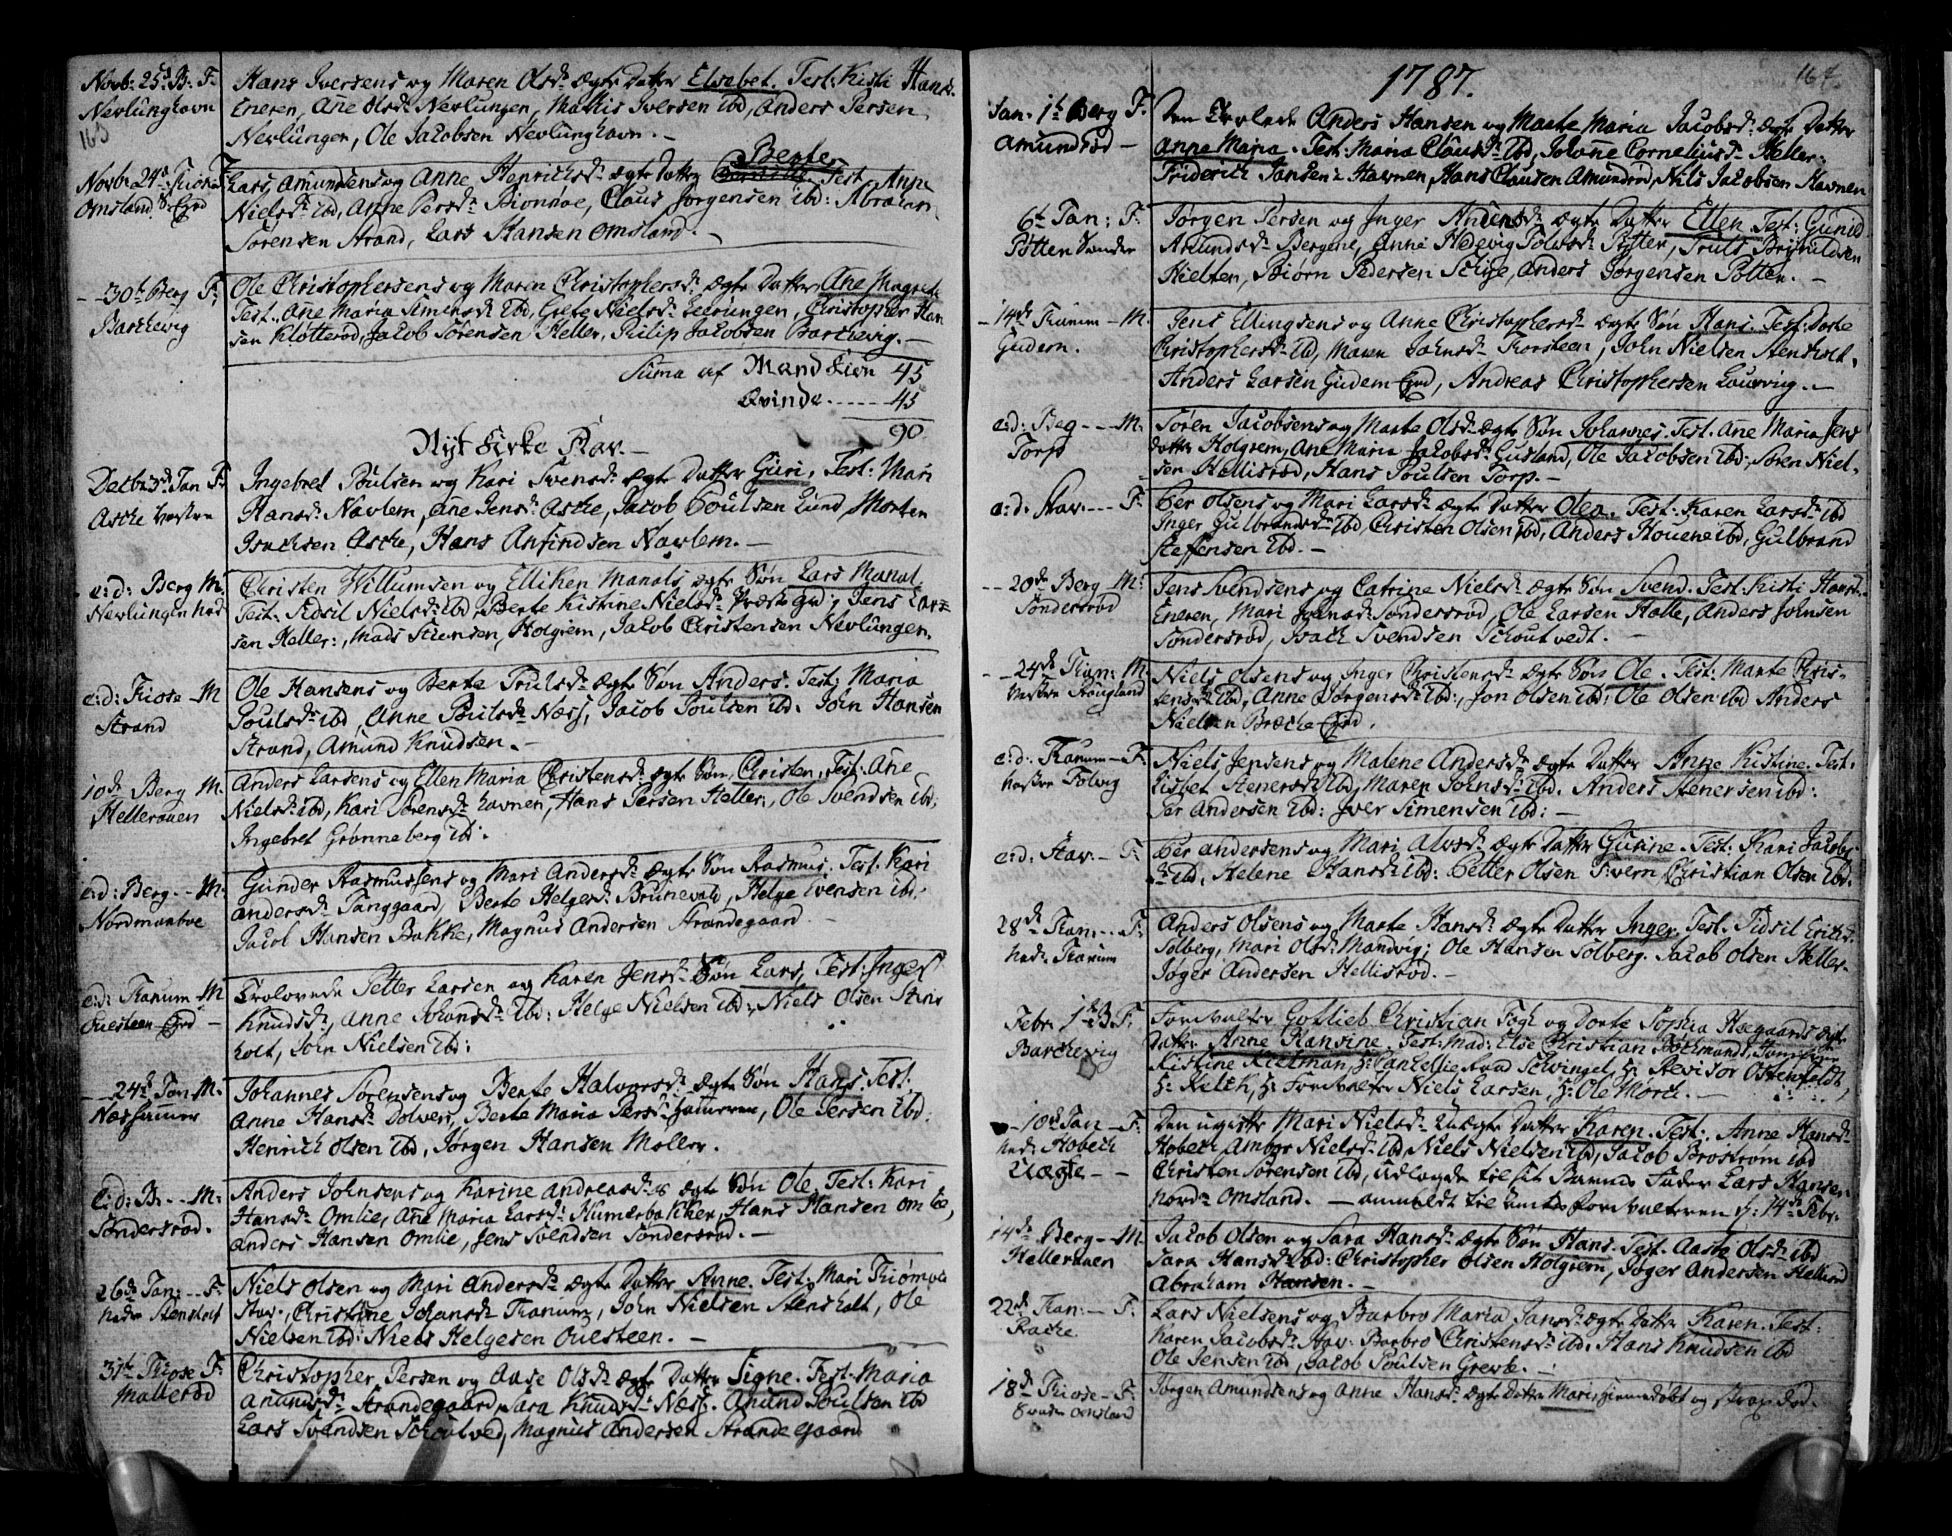 163
Novb: 25d B: F:
Nevlunghavn
Hans Iversens og Maren Olsd: ægte Datter Elsebet. Test: Kisti Hans:
Eneren, Ane Olsd: Nevlungen, Mathis Iversen ibd, Anders Persen
Nevlungen, Ole Jacobsen Nevlunghavn. –
Omsland
Berte
Lars Amundsens og Anne Henrichsd: ægte Datter Test. Anne
Nielsd: ibd, Anne Persd: Bionnøe, Claus Jorgensen ibd: Abraham
Sørensen Strand, Lars Hansen Omsland. –
30te Berg F:
Barchevig
Ole Christophersens og Maren Christophersd: ægte Datter Ane Magrete
Test. Ane Maria Simensd: ibd, Grete Nielsd: Leerungen, Christopher Han
sen Klotterød, Jacob Sørensen Heller, Philip Jacobsen Barchevig. –
Suma af Mand Kiøn 45
Qvinde. ----- 45
90
Nyt Kirke Aar. –
Decbr 3d Tan F:
Asche
Ingebret Poulsen og Kari Svensd: ægte Datter Guri. Test: Mari
Hansd: Navlem, Ane Jensd: Asche, Jacob Poulsen Lund, Morten
Isachsen Asche, Hans Anfindsen Navlem. –
e:d: Berg M.
Nevlungen
Christen Willumsen og Elliken Manals ægte Søn Lars Manal
Test. Sidsil Nielsd: ibd, Berte Kistine Nielsd: Præstegrd, Jens Lar=
sen Heller:, Mads Holgiem, Jacob Christensen Nevlungen.
e:d: Kiose – M
Strand
Ole Hansens og Berte Trulsd: ægte Søn Anders. Test: Maria
Poulsd: ibd, Anne Poulsd: Næss, Jacob Poulsen ibd. John Hansen
Strand, Amund Knudsen. –
10d Berg M.
Hellerauen
Anders Larsens og Ellen Maria Christensd: ægte Søn, Christen, Test: Ane
Nielsd: ibd, Kari Sørensd: Havnen, Hans Persen Heller:, Ole Svendsen ibd,
Ingebret Grønneberg ib:
e:d: Berg. – M.
Nordmantoe
Gunder Rasmussens og Mari Andersd: ægte Søn Rasmus. Test: Kari
Andersd: Tanggaard, Berte Helgesd: Brunevald, Helge Ivensen ibd.
Jacob Hansen Bakke, Magnus Andersen Strandegaard –
e:d: Tanum – M
Ouesteen
Trolovede Petter Larsen og Karen Jensd: Søn Lars, Test: Inger
Knudsd:, Anne Johansd: ibd: Helge Nielsen ibd:, Niels Olsen Stens
holt, John Nielsen ibd:
– 24d Tan M:
Johannes Sørensens og Berte Halvorsd: ægte Søn Hans. Test.
Anne Hansd: Dolven, Berte Maria Persd: Hameren, Ole Persen ibd:
Henrich Olsen ibd, Jørgen Hansen Møller.
e:d: B. – – M:
Søndersrød.
Anders Johnsens og Karine Andreasd: ægte Søn Ole. Test: Kari
Hansd: Omlie, Ane Maria Larsd: Humerbakken, Hans Hansen Omlie,
Anders Hansen Omlie, Jens Svendsen Søndersrød. –
26d Tan: – – F:
Nedre Stensholt
Niels Olsen og Mari Andersd: ægte Datter Anne. Test: Mari
Christine Johansd: Tanum, John Nielsen Stensholt, Ole
Nielsen ibd: Niels Helgesen Ouesteen. –
31te Kiose F:
Mallerød
Christopher Persen og Aase Olsd: ægte Datter Signe. Test: Maria
Anunsd: Strandegaard, Sara Knudsd: Næss. Amund Poulsen ibd
Lars Svendsen Schoutved, Magnus Andersen Strandegaard
164.
1787.
Jan. 1te Berg F:
Amundrød –
Den Trolede Anders Hansen og Marte Maria Jacobsd: ægte Datter
Anne Maria. Test. Maria Clausd: ibd, Johanne Corneliusd: Heller:
Friderich Jansen i Havnen, Hans Clausen Amundrød, Nils Jacobsen Havnen
6te Tan: F:
Potten
Jørgen Persen og Inger Andersd: ægte Datter Ellen. Test: Gunild
Amundsd: Bergene, Anne Hedevig Potter, Truls Brynildsen
Nielsen, Biørn Pedersen Anders Jørgensen Potten. –
– 14de Tanum – M.
Gudem.
Jens Ellingsens og Anne Christophersd: ægte Søn Hans. Test: Dorte
Christophersd: ibd, Maren Johnsd: Torsteen, John Nielsen Stensholt,
Anders Larsen Gudem Egrd, Andreas Christophersen Laurvig. –
e:d: Beg – – – M.
Torp
Søren Jacobsens og Marte Olsd: ægte Søn Johannes. Test. Ane Maria Jens
datter Holgiem, Ane Maria Jacobsd: Gusland, Ole Jacobsen ibd:, Søren Niel-
sen Hellisrød, Hans Poulsen Torp. –
e:d. Hav. – – – F.
Per Olsens og Mari Larsd: ægte Datter Olea. Test: Karen Larsd: ibd
Inger Gulbrandsd: ibd, Christen Olsen ibd, Anders Houene ibd, Gulbrand
Steffensen ibd. –
– – 20de Berg – M:
Søndersrød
Jens Svendsens og Catrine Nielsd: ægte Søn Svend. Test: Kisti Hansd:
Eneren, Mari Søndersrød, Ole Larsen Halle, Anders Johnsen
Søndersrød, Isach Svendsen Schoutvedt. –
– – 24de Tan: M
Niels Olsens og Inger Christensd: ægte Søn Ole. Test: Marte Chris-
tensd: ibd, Anne Jørgensd: ibd:, Jon Olsen ibd: Ole Olsen ibd Anders
Nielsen Bræche Egrd.
e:d: Tanum – F.
Niels Jensens og Malene Andersd: ægte Datter Anne Kistine. Test.
Lisbet Stenersd: ibd, Maren Johnsd: ibd. Anders Stenersen ibd:
Per Andersen ibd: Iver Simensen ibd: –
e:d: Hav. – F:
Per Andersens og Mari Alvsd: ægte Datter Gurine. Test: Kari Jacobs-
d: ibd. Helene Hansd: ibd: Petter Olsen Christian Olsen ibd.
28de Tan. – – F.
Ned: Tanum
Anders Olsens og Marte Hansd: ægte Datter Inger. Test. Sidsil Erichsd:
Solberg, Mari Olsd: Manvig; Ole Hansen Solberg. Jacob Olsen Heller-
Joger Andersen Hellisrød. –
Febr. 1te B. F.
Barchevig
Forvalter Gotlieb Christian Fogh og Dorte Sophia Hægaards ægte
Datter Anne Hansine. Test: Mad: Else Christian Jomfrue
Kistine Kielman, H: Cancellieraad Schwingel, H: Revisor Ostenfeldt,
H: Kelch, H: Forvalter Niels Larsen, H: Ole Mørch. –
– 10de Tan – F.
ned: Hobech
Uægte – –
Den ugifte Mari Nielsd: uægte Datter Karen. Test: Anne Hansd:
Hobech, Ambor Nielsd: ibd, Niels Nielsen ibd, Jacob Brostrøm ibd
Christen Sørensen ibd, udlagde til sit Barns Fader Lars Hansen
Nord: Omsland. – anmeldt til Amtsforvalteren d: 14de Febr.
14de Berg – M.
Hellerauen
Jacob Olsen og Sara Hansd: ægte Søn Hans. Test. Aaste Olsd: ibd
Sara Hansd: ibd: Christopher Olsen Holgiem, Joger Andersen Hellisrød
Abraham Hansen. –
22de Tan: – F.
Lars Nielsens og Barbro Maria Jansd: ægte Datter Karen. Test:
Karen Jacobsd: Hav: Barbro Christensd: ibd. Hans Knudsen ibd
Ole Jensen ibd, Jacob Poulsen Grevle. –
18de Kiose – F.
Omsland
Jørgen Amundsens og Anne Hansd: ægte Datter Mari, Hiemmedøbt og strax død.